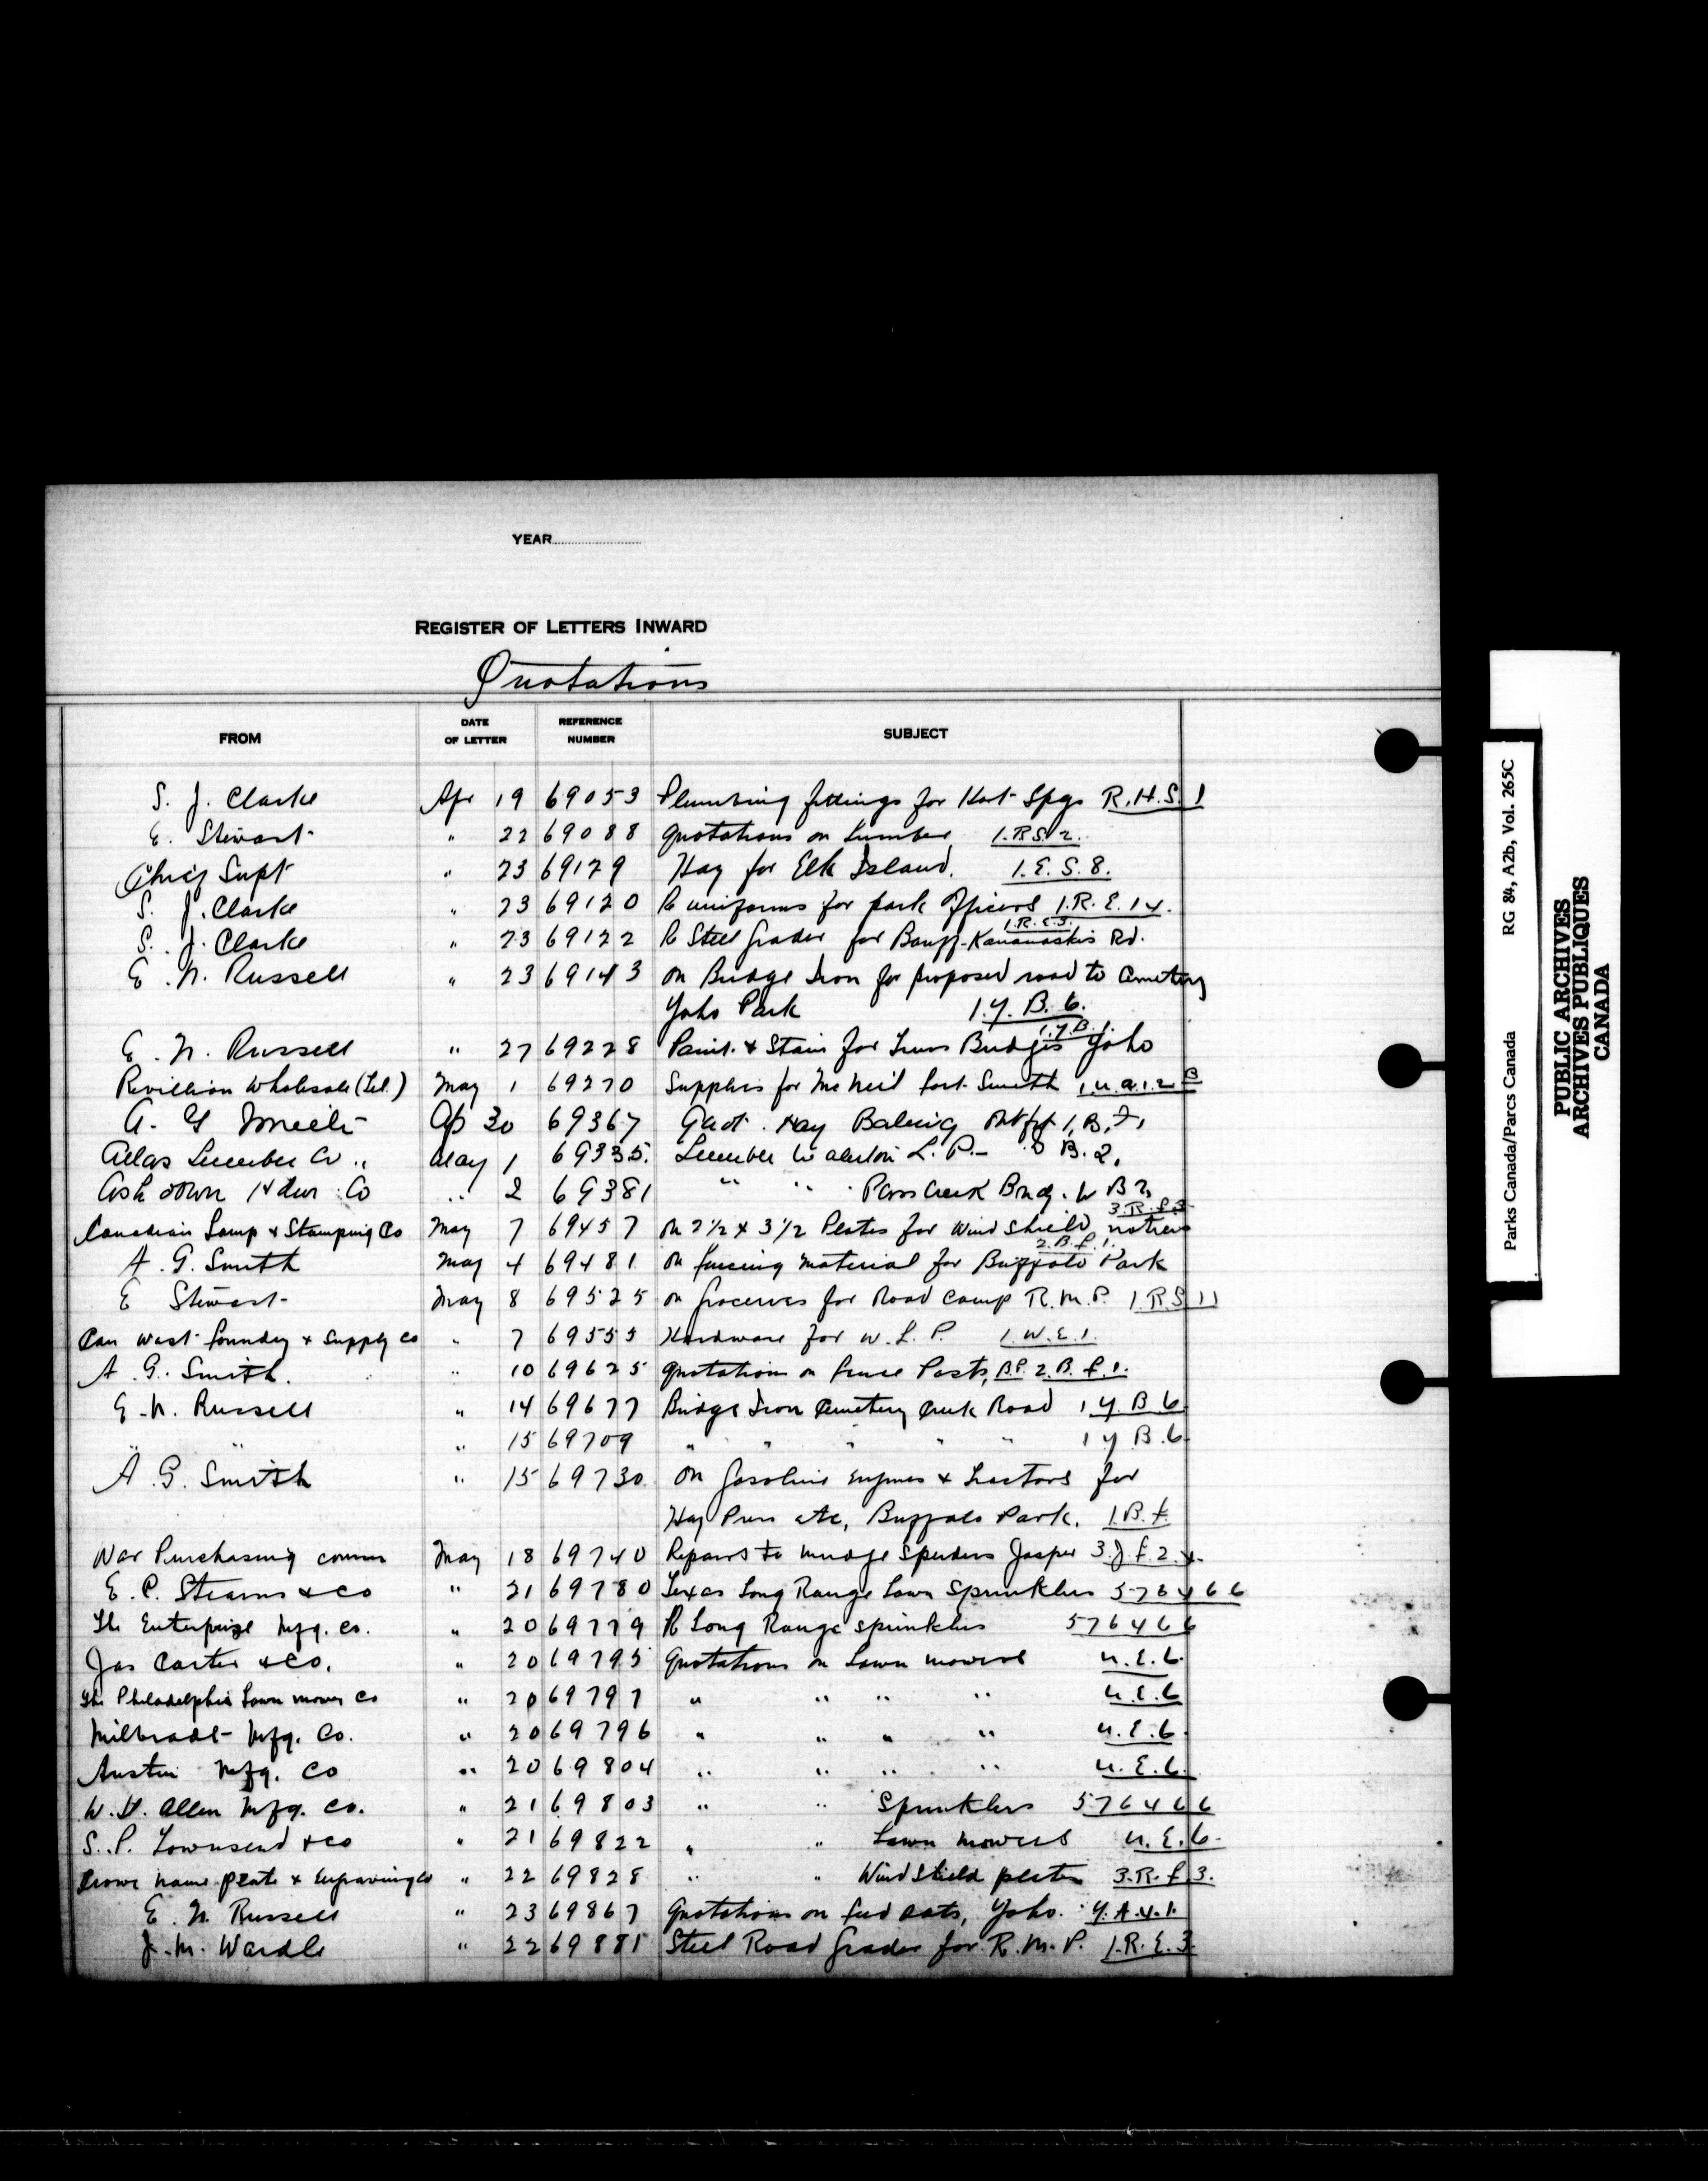 YEAR
REGISTER OF LETTERS INWARD
Quotations
FROM DATE OF LETTER REFERENCE NUMBER SUBJECT
S. J. Clarke Apr 19 69053 Plumbing fittings for Hot Spgs R.H.S.1
E. Stewart " 22 69088 Quotations on Lumber 1.R.S.2.
Chief Supt " 23 69129 Hay for Elk Island. 1.E.S.8.
S. J. Clarke " 23 69120 Re uniforms for park Officers 1.R.E.14.
S. J. Clarke " 23 69122 Re Steel Grader for Banff-Kananaskis Rd. 1.R.E.3.
E. N. Russell " 23 69143 on Bridge Iron for proposed road to Cemetery
Yoho Park 1.Y.B.6.
E. N. Russell " 27 69228 Paint & Stain for Truss Bridges Yoho 1.Y.B.1.
Revillion Wholesale (Ltd.) May 1 69270 Supplies for McNeil Fort Smith 1.U.a.1.2 B
A. G Ap 30 69367 Quot. Hay Baling Outfit 1,B.F,
Atlas Lumber Co .. May 1 69335. Lumber Waterton L. P. - B.2.
Ashdown Hdw Co " 2 69381 " " Pass Creek Bridg. W B 2
Canadian Lamp & Stamping Co May 7 69457 on 2 1/2 x 3 1/2 Plates for Wind Shield notices 3.R.f.3
A. G. Smith May 4 69481 on fencing material for Buffalo Park 2.B.f.1.
E Stewart May 8 69525 on Groceries for Road Camp R.M.P. 1.R.S.11
Can West foundry & Supply Co " 7 69555 Hardware for W.L.P. 1.W.E.1.
A. G. Smith. " 10 69625 Quotation on fence Posts, B.P. 2.B.f.1.
E. N. Russell " 14 69677 Bridge Iron Cemetery Creek Road 1 Y.B.6
" " " 15 69709 " " " " " 1 Y B.6
A. G. Smith " 15 69730 on Gasoline Engines & Tractors for
Hay Press etc, Buffalo Park. 1.B.f.
War Purchasing comm May 18 69740 Repairs to Jasper 3.J.f.2.
E. P. Stearns & Co " 21 69780 Texas Long Range Lawn Sprinklers 576466
The Enterprise Mfg. Co. " 20 69779 Re Long Range sprinklers 576466
Jas Carter & Co. " 20 69795 Quotations on Lawn mowers U.E.6.
The Philadelphia Lawn mower Co " 20 69797 " " " " U.E.6
Milbradt Mfg. Co. " 20 69796 " " " " U.E.6.
Austin Mfg. Co " 20 69804 " " " " U.E.6.
W. D. Allen Mfg. Co. " 21 69803 " " Sprinklers 576466
S. P. Townsend & Co " 21 69822 " " Lawn Mowers U.E.6.
Crowe name plate & Engraving Co " 22 69828 " " Wind Shield plates 3.R.f.3.
E. N. Russell " 23 69867 Quotations on feed oats, Yoho. Y.A.4.1.
J. M. Wardle " 22 69881 Steel Road Grader for R.M.P. 1.R.E.3.
Parks Canada/Parcs Canada RG 84, A2b, Vol. 265C
PUBLIC ARCHIVES
ARCHIVES PUBLIQUES
CANADA